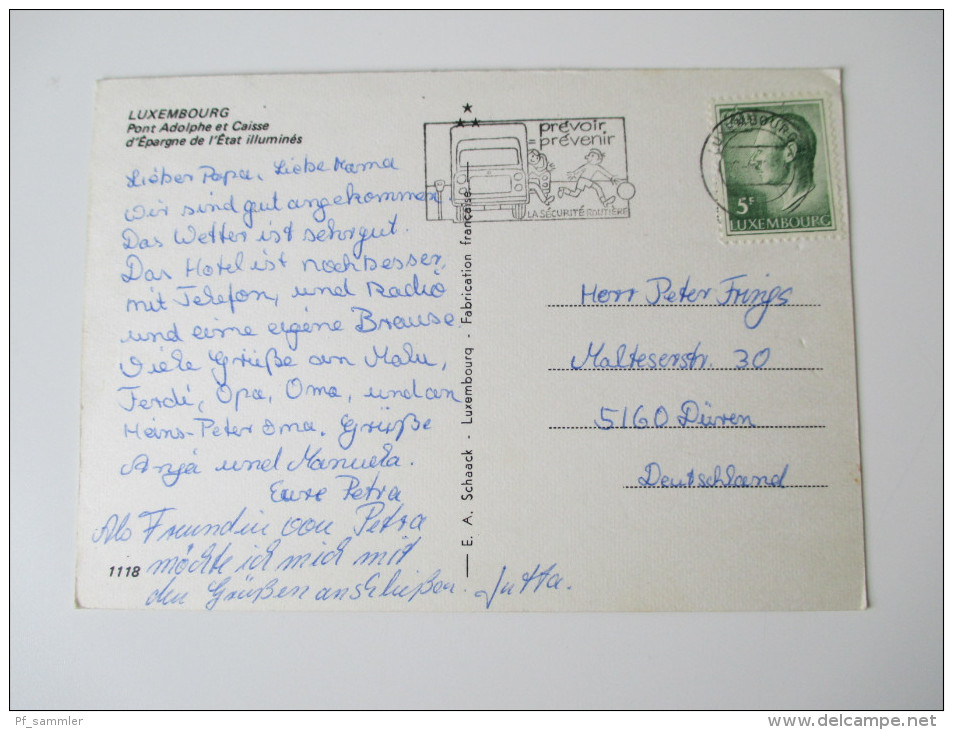 LUXEMBOURG
Pont Adolphe et Caisse
d'Épargne de l'État illuminés
prévoir
prévenir
LA SÉCURITÉ ROUTIÈRE
LUXEMBOURG
5F
LUXEMBOURG
Lieber Papa, Liebe Mama
Wir sind gut angekommen
Das Wetter ist sehr gut.
Das Hotel ist noch besser,
mit Telefon, und Radio
und eine eigene Brause.
Viele Grüße an Malu,
Ferdi, Opa, Oma, und an
Heins-Peter Oma. Grüße
Anja und Manuela.
Eure Petra
Als Freundin von Petra
möchte ich mich mit
den Grüßen anschließen. Jutta.
1118
E. A. Schaack - Luxembourg - Fabrication française
Herr Peter Frings
Malteserstr. 30
5160 Düren
Deutschland
Pf_sammler
www.delcampe.net